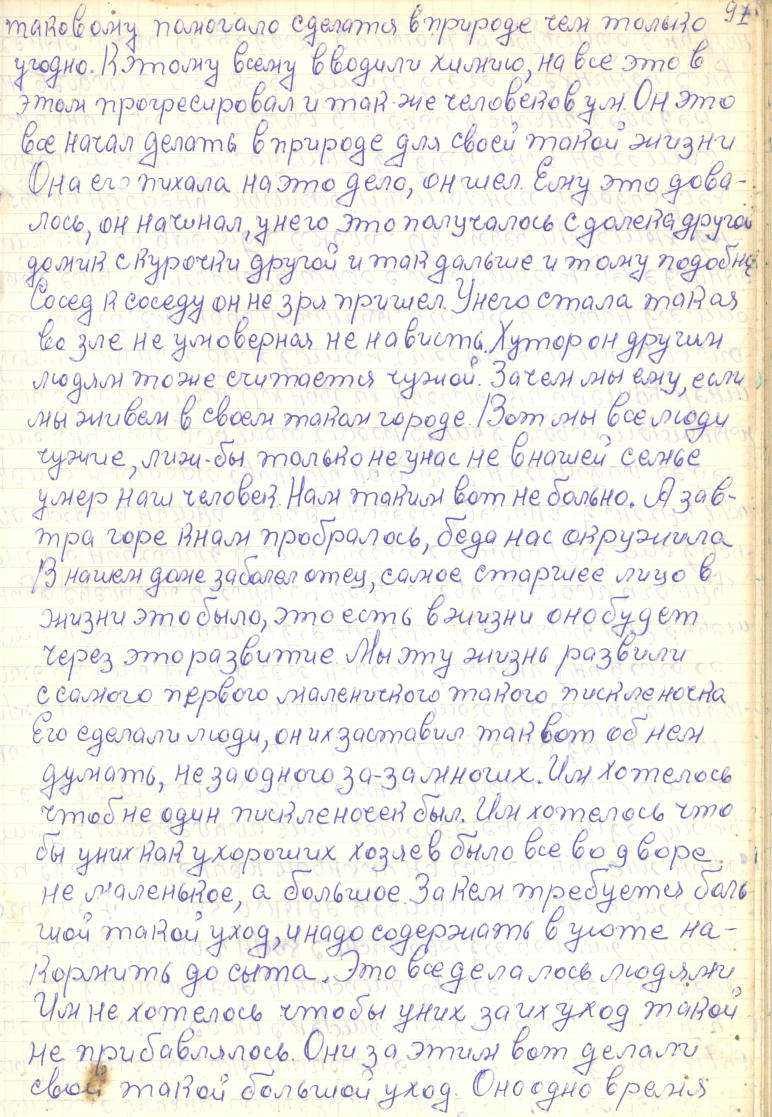 97
таковому помогало сделатя в природе чем только
угодно. К этому всему вводили химию, на все это в
этом прогресировал и так-же человеков ум. Он это
все начал делать в природе для своей такой жизни
Она его пихала на это дело, он шел. Ему это дова-
лось, он начинал, у него это получалось с далека другой
домик с курочки другой и так дальше и тому подобне
Сосед к соседу он не зря пришел. У него стала такая
во зле не умоверная не нависть. Хутор он другим
людям тоже считается чужой. Зачем мы ему, если
мы живем в своем таком городе. Вот мы все люди
чужие, лиж-бы только не у нас не в нашей семье
умер наш человек. Нам таким вот не больно. А зав-
тра горе к нам пробралось, беда нас окружила
В нашем доме заболел отец, самое старшее лицо в
жизни это было, это есть в жизни оно будет
через это развитие. Мы эту жизнь развили
с самого первого маленичкого такого пискленочка
Его сделали люди, он их заставил так вот об нем
думать, не за одного за-за многих. Им хотелось
чтоб не один пискленочек был. Им хотелось что
бы у них как у хороших хозяев было все во дворе
не маленькое, а большое. За кем требуется боль
шой такой уход, и надо содержать в уюте на-
кормить до сыта. Это все делалось людями
Им не хотелось чтобы у них за их уход такой
не прибавлялось. Они за этим вот делали
свой такой большой уход. Оно одно время